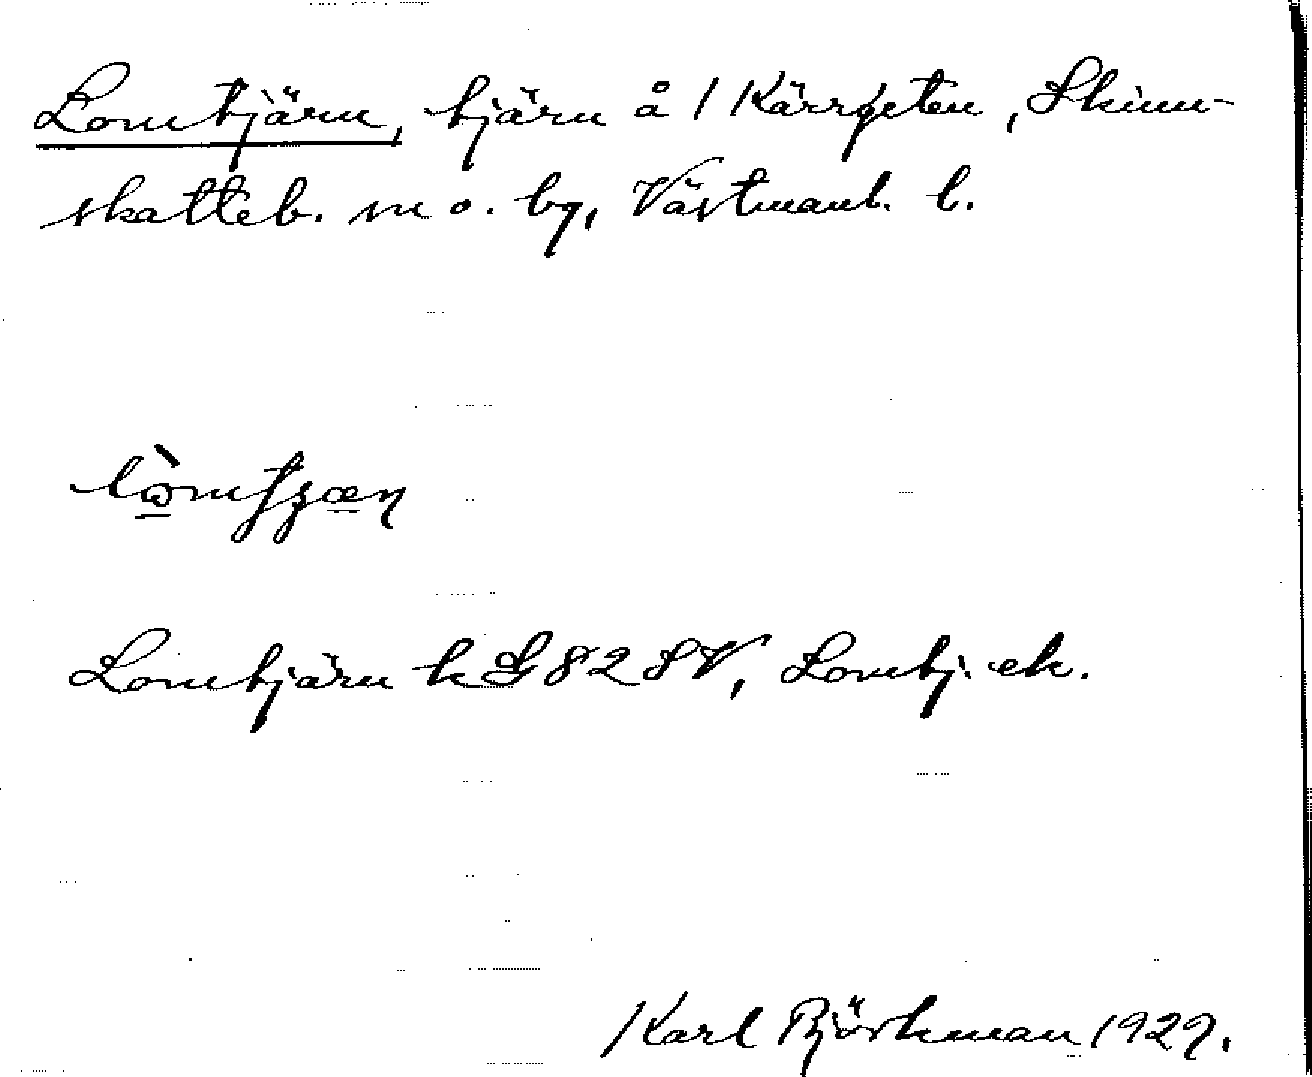 Lomtjärn, tjärn å 1 Kärrgeten, Skinn-
skatteb. sn o. by, Västmanl. l.
Lomtjärn k G 82 SV, Lomtj. ek.
Karl Björkman 1929.